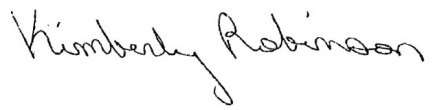 Kimberly Robinson